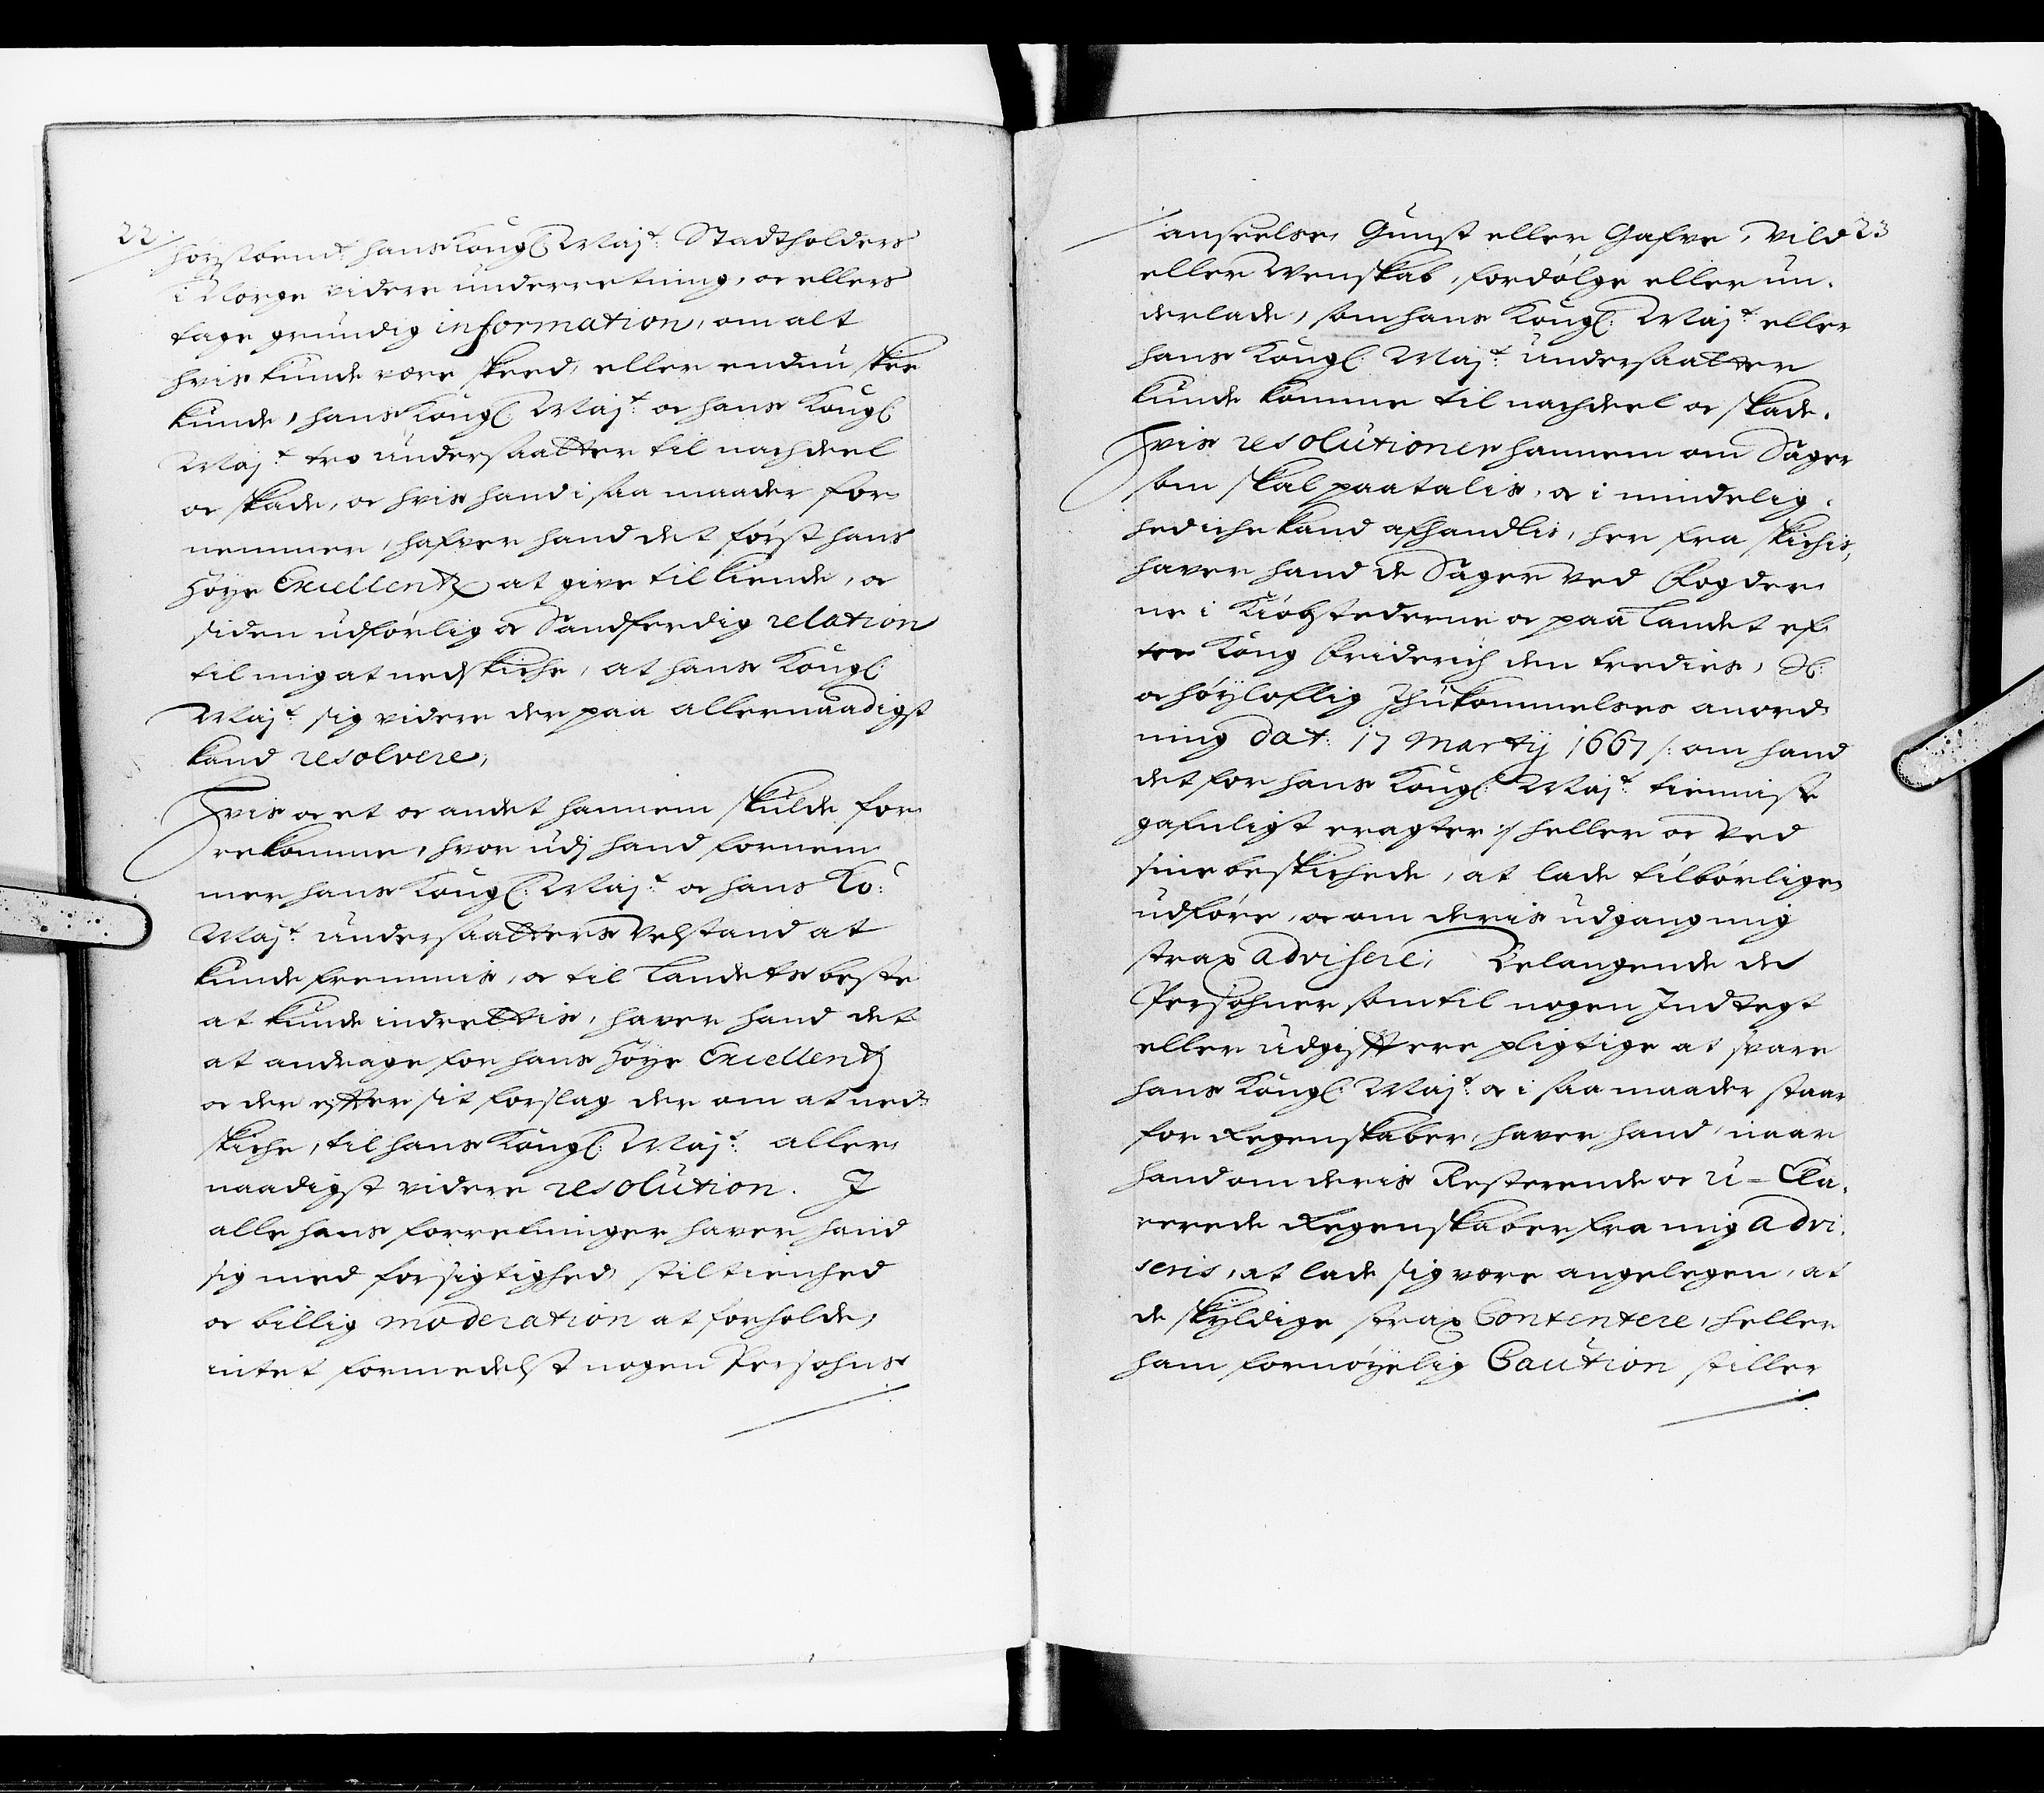 22
høystbemt hans Kongl: Majt: Stadtholders
i Norge videre underretning, oc ellers
tage grundig information, om alt
hvis kunde være skeed, eller endnu skee
kunde, hans Kongl: Majt: oc hans Kongl:
Majt: tro Undersaatter til nachdeel
oc skade, oc hvis hand i saa maader for-
nemmer, hafver hand det først hans
høye Excellentz at give tilkiende, oc
siden udførlig oc Sandferdig relation
til mig at nedskiche, at hans Kongl:
Majt: sig videre der paa allernaadigst
kand resolvere,
Hvis oc et oc andet hannem skulde for-
rekomme, hvor udj hand fornem
mer hans Kongl: Majt: oc hans Ko:
Majt: Undersaatters Velstand at
kunde fremmis, oc til Landets beste
at kunde indrettis, haver hand det
at andrage for hans høye Excellentz
oc der efter sit forslag der om at ned-
skiche, til hans Kongl: Majt: aller-
naadigst videre resolution. I
alle hans forretninger haver hand
sig med forsigtighed, stiltienhed
oc billig moderation at forholde,
intet formedelst nogen Persohns
23
anseelse, Gunst eller Gafve, Vild
eller Venskab, fordølge eller un-
derlade, som hans Kongl: Majt: eller
hans Kongl: Majt: Undersaatter
kunde komme til nachdeel oc skade.
Hvis resolutioner hannem om Sager
som skal paatalis, oc i mindelig-
hed iche kand afhandlis, her fra skichis,
haver hand de Sager ved Fogder-
ne i Kiøbstederne oc paa Landet ef-
ter Kong Friderich den tredies, Sl:
oc høyloflig Ihukommelses anord-
ning dat: 17 Martij 1667 /: om hand
det for hans Kongl: Majt: tienniste
gafnligst eragter :/ heller oc Ved
sine beskichede, at lade tilbørligen
udføre, oc om deris udgang mig
strax advisere, Belangende de
Persohner som til nogen Indtegt
eller Udgifft ere pligtige at svare
hans Kongl: Majt: oc i saa maader staar
for Regenskaber, haver hand, naar
hand om deris Resterende oc U-Cla-
rerede Regenskaber fra mig advi-
seris, at lade sig være angelegen, at
de skyldige strax Contentere, heller
ham fornøyelig Caution stiller